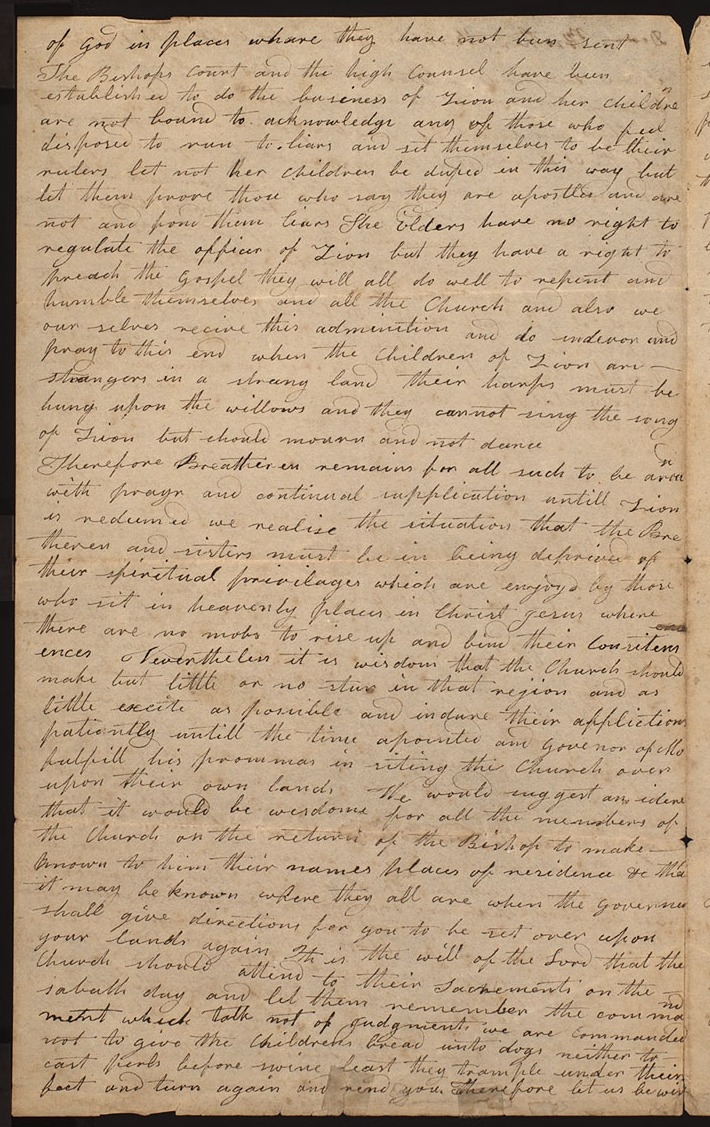 of God in places whare they have not ben sent
The Bishops Court and the high Counsel have ben
established to do the business of Zion and her childre n
are not bound to acknowledge any of those who feel
disposed to run to liars and set themselves to be their
rulers let not her children be duped in this way but
let them prove those who say they are apostles and are
not and fond them liars The Elders have no right to
regulate the officer of Zion but they have a right to
preach the gospel they will all do well to repent and
humble themselves and all the Church and also we
our selves recive this admonition and do indevor and
pray to this end when the Children of Zion are
strangers in a strang land their harps must be
hung upon the willows and they cannot sing the song
of Zion but should mourn and not dance
Therefore Breatheren remains for all such to be
with prayr and continual supplication untill Zion
is redeemed we realise the situation that the Bre
theren and sisters must be in being deprived of
their spiritual privilages which are enjoyd by those
who sit in heavenly places in Christ Jesus where
there are no mobs to rise up and bind their Consiten
ences Nevertheless it is wisdom that the Church should
make but little or no stur in that region and as
little excite as possible and indure their affliction
patiently untill the time apointed and Govenor of Mo
fulfill his prommas in siting the Church over
upon their own lands We would suggest an idere
that it would be wisdome for all the members of
the Church on the return of the Bishop to make
known to him their names places of residence &c tha
it may be known where they all are when the Governer
shall give directions for you to be set over upon
your lands again It is the will of the Lord that the
Church should attend to their Sacrements on the
sabath day and let them remember the comma nd
ment which talk not of judgments we are commanded
not to give the Childrens bread unto dogs neither to
cast perls before swine least they trample under their
feet and turn again and rend you Therefore let us be wis